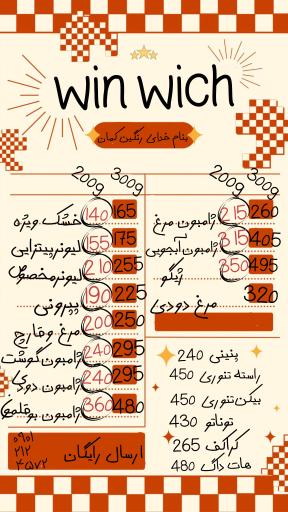 win wich
بنام خدای رنگین کمان
200g 300g
ژامبون مرغ 215 260
ژامبون آبجویی 315 405
ژیگو 350 495
مرغ دودی 320
200g 300g
خشک ویژه 140 165
لیونر پیتزایی 155 175
لیونر مخصوص 210 255
پپرونی 190 225
مرغ و قارچ 200 250
ژامبون گوشت 240 295
ژامبون دودی 240 295
ژامبون بوقلمون 360 480
پنینی 240
راسته تنوری 450
بیکن تنوری 450
توناتو 430
کراکف 265
هات داگ 480
ارسال رایگان
0901
212
4572